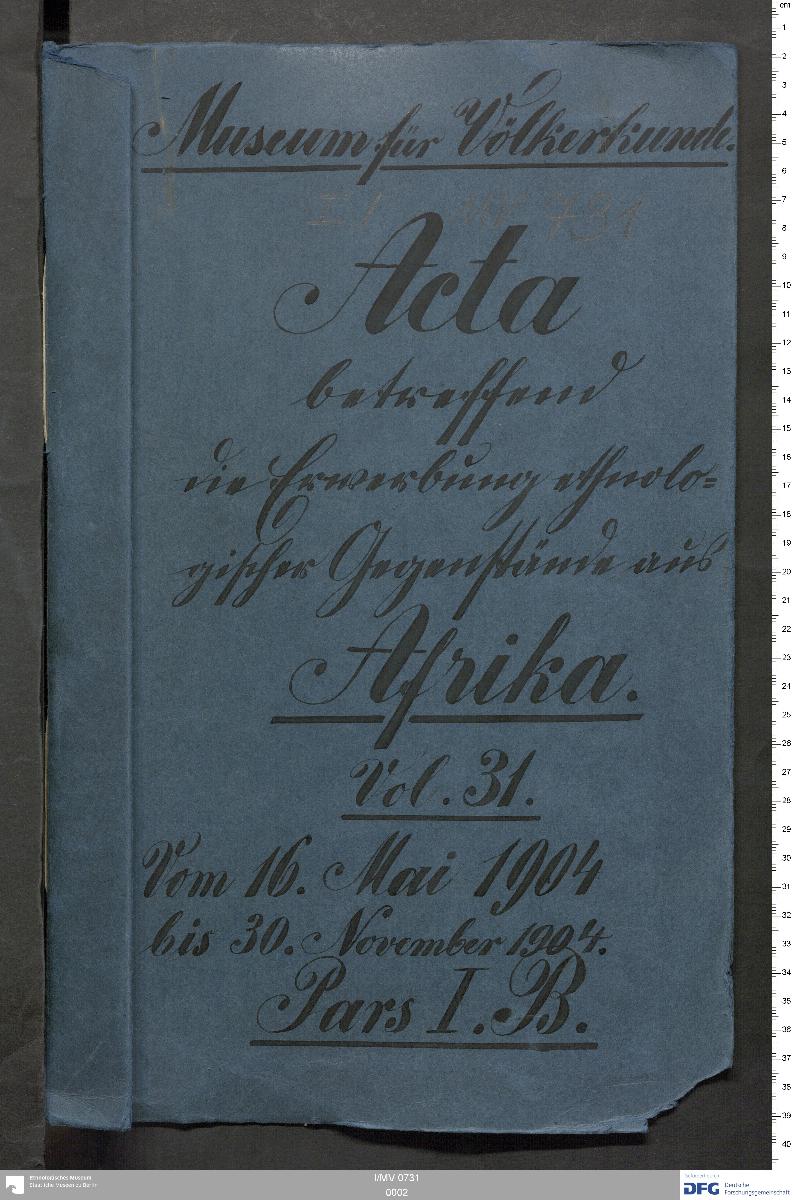 Museum für Völkerkunde.
I/ MV 731
Acta
betreffend
die Erwerbung ethnolo=
gischer Gegenstände aus
Afrika.
Vol. 31.
Vom 16. Mai 1904
bis 30. November 1904.
Pars I. B.
cm
1
2
3
4
5
6
7
8
9
10
11
12
13
14
15
16
17
18
19
20
21
22
23
24
25
26
27
28
29
30
31
32
33
34
35
36
37
38
39
40
Ethnologisches Museum
Staatliche Museen zu Berlin
I/MV 0731
0002
Gefördert durch
DFG Deutsche
Forschungsgemeinschaft